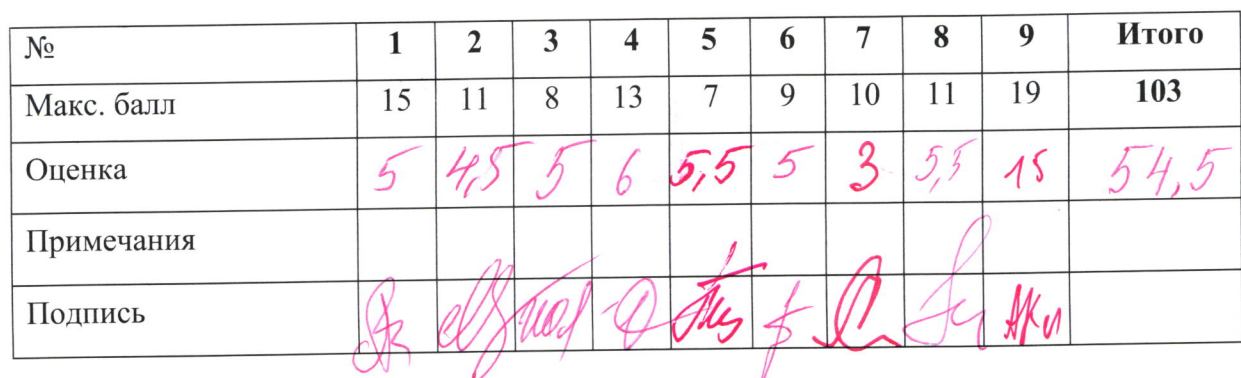 № 1 2 3 4 5 6 7 8 9 Итого
Макс. балл 15 11 8 13 7 9 10 11 19 103
Оценка 5 4,5 5 6 5,5 5 3 5,5 15 54,5
Примечания
Подпись